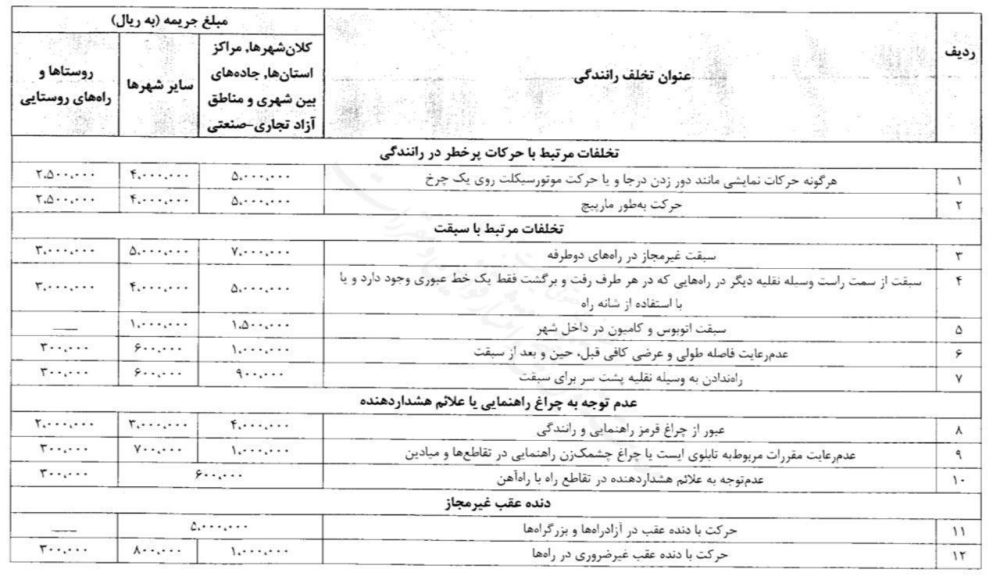 ردیف
عنوان تخلف رانندگی
مبلغ جریمه (به ریال)
کلان‌شهرها، مراکز
استان‌ها، جاده‌های
بین شهری و مناطق
آزاد تجاری-صنعتی
سایر شهرها
روستاها و
راه‌های روستایی
تخلفات مرتبط با حرکات پرخطر در رانندگی
۱ هرگونه حرکات نمایشی مانند دور زدن درجا و یا حرکت موتورسیکلت روی یک چرخ ۵،۰۰۰،۰۰۰ ۴،۰۰۰،۰۰۰ ۲،۵۰۰،۰۰۰
۲ حرکت به‌طور مارپیچ ۵،۰۰۰،۰۰۰ ۴،۰۰۰،۰۰۰ ۲،۵۰۰،۰۰۰
تخلفات مرتبط با سبقت
۳ سبقت غیرمجاز در راه‌های دوطرفه ۷،۰۰۰،۰۰۰ ۵،۰۰۰،۰۰۰ ۳،۰۰۰،۰۰۰
۴ سبقت از سمت راست وسیله نقلیه دیگر در راه‌هایی که در هر طرف رفت و برگشت فقط یک خط عبوری وجود دارد و یا
با استفاده از شانه راه ۵،۰۰۰،۰۰۰ ۴،۰۰۰،۰۰۰ ۳،۰۰۰،۰۰۰
۵ سبقت اتوبوس و کامیون در داخل شهر ۱،۵۰۰،۰۰۰ ۱،۰۰۰،۰۰۰ ___
۶ عدم‌رعایت فاصله طولی و عرضی کافی قبل، حین و بعد از سبقت ۱،۰۰۰،۰۰۰ ۶۰۰،۰۰۰ ۳۰۰،۰۰۰
۷ راه‌ندادن به وسیله نقلیه پشت سر برای سبقت ۹۰۰،۰۰۰ ۶۰۰،۰۰۰ ۳۰۰،۰۰۰
عدم توجه به چراغ راهنمایی یا علائم هشداردهنده
۸ عبور از چراغ قرمز راهنمایی و رانندگی ۴،۰۰۰،۰۰۰ ۳،۰۰۰،۰۰۰ ۲،۰۰۰،۰۰۰
۹ عدم‌رعایت مقررات مربوط‌به تابلوی ایست یا چراغ چشمک‌زن راهنمایی در تقاطع‌ها و میادین ۱،۰۰۰،۰۰۰ ۷۰۰،۰۰۰ ۳۰۰،۰۰۰
۱۰ عدم‌توجه به علائم هشداردهنده در تقاطع راه با راه‌آهن ۶۰۰،۰۰۰ ۳۰۰،۰۰۰
دنده عقب غیرمجاز
۱۱ حرکت با دنده عقب در آزادراه‌ها و بزرگراه‌ها ۵،۰۰۰،۰۰۰ ___
۱۲ حرکت با دنده عقب غیرضروری در راه‌ها ۱،۰۰۰،۰۰۰ ۸۰۰،۰۰۰ ۳۰۰،۰۰۰